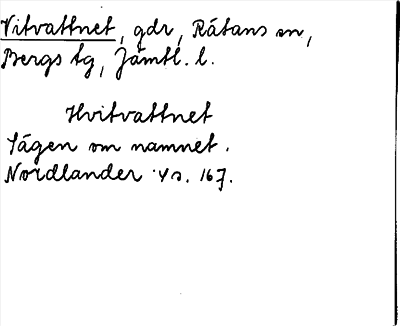 Vitvattnet, gdr, Rätans sn,
Bergs tg, Jämtl. l.
Hvitvattnet
Sägen om namnet.
Nordlander s. 167.